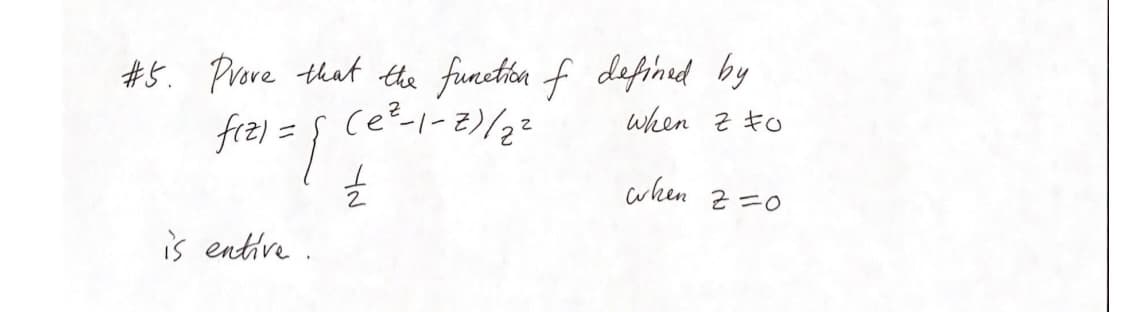 #5. Prove that the function f defined by
f(z) = { (e^z-1-z)/z^2 when z ≠ 0
1/2 when z = 0
is entire.